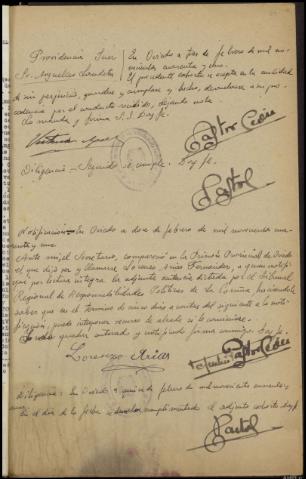 Providencia Juez
Sr. Arguelles Landeta
En Oviedo a tres de febrero de mil no-
vecientos cuarenta y uno.
El precedente exhorto se acepta en la cantidad
de sin perjuicio, guardese y cumplase y hecho, devuelvase a su pro-
cedencia por el conducto recibido, dejando nota.
Lo manda y firma S.S. Doy fe.
Pastor
Diligencia - Seguido se cumple. Doy fe.
Pastor
Notificacion - En Oviedo a doce de febrero de mil novecientos cuaren-
ta y uno.
Ante mi, el Secretario, comparecio en la Prision Provincial de Oviedo
el que dijo ser y llamarse Lorenzo Arias Fernandez, a quien notifi-
que por lectura integra la adjunta sentencia dictada por el Tribunal
Regional de Responsabilidades Politicas de La Coruña haciendole
saber que en el termino de cinco dias a contar del siguiente a la noti-
ficacion, puede interponer recurso de alzada si le conviniere.
quedar enterado y notificado firma conmigo. Doy fe.
Lorenzo Arias
Pastor
Diligencia: En Oviedo a quince de febrero de mil novecientos cuarenta y
uno
En el dia de la fecha devuelvo cumplimentado el adjunto exhorto. Doy fe
Pastor